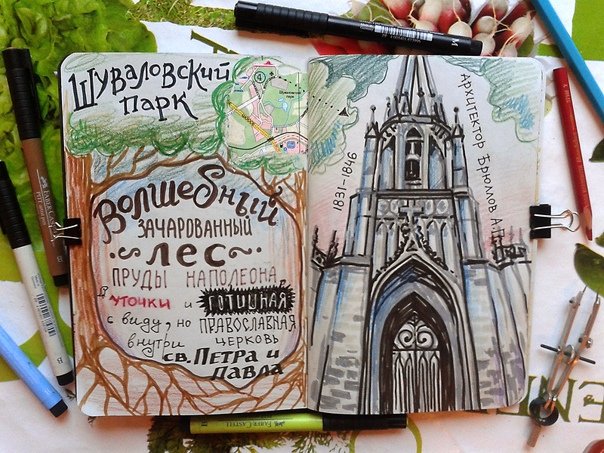 Шуваловский
парк
Волшебный
зачарованный
лес
пруды Наполеона,
уточки и готичная
с виду, но православная
внутри церковь
св. Петра и
Павла
1831-1846
Архитектор Брюллов А.П.
FABER-CASTELL
M
END